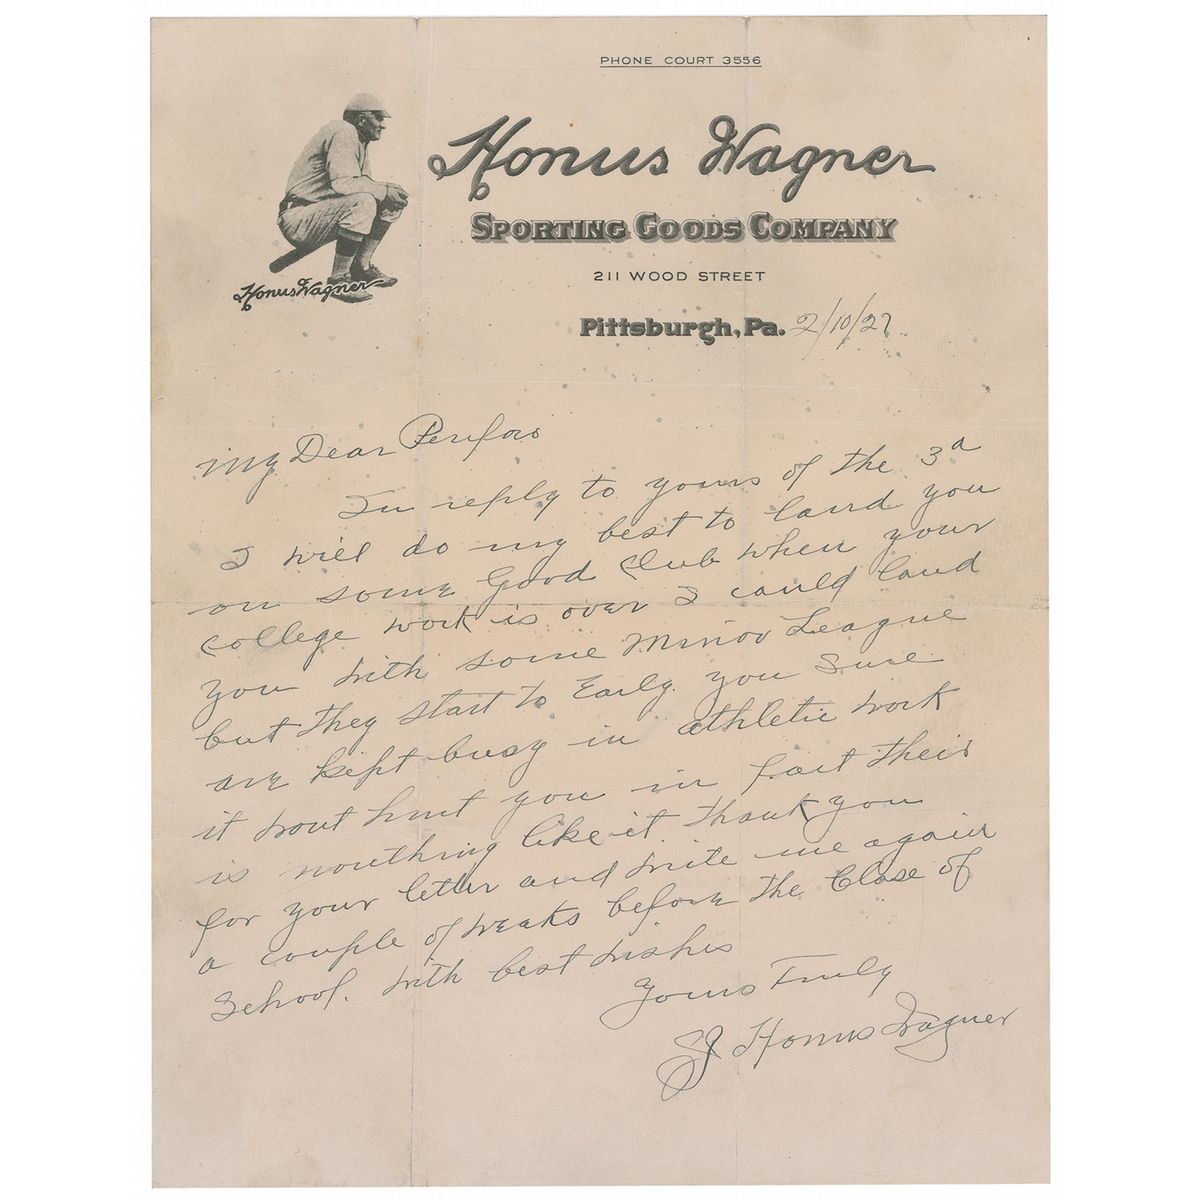 PHONE COURT 3556
Honus Wagner
SPORTING GOODS COMPANY
211 WOOD STREET
Honus Wagner
Pittsburgh, Pa. 2/10/27
My Dear
In reply to yours of the 3d
I will do my best to land you
on some Good Club when your
college work is over I could land
you with some Minor League
but they start to Early. you Sure
are kept busy in athletic work
it wont hurt you in fact their
is nouthing like it. thank you
for your letter and write me again
a couple of weaks before the Close of
School. with best wishes
Yours Truly
J Honus Wagner